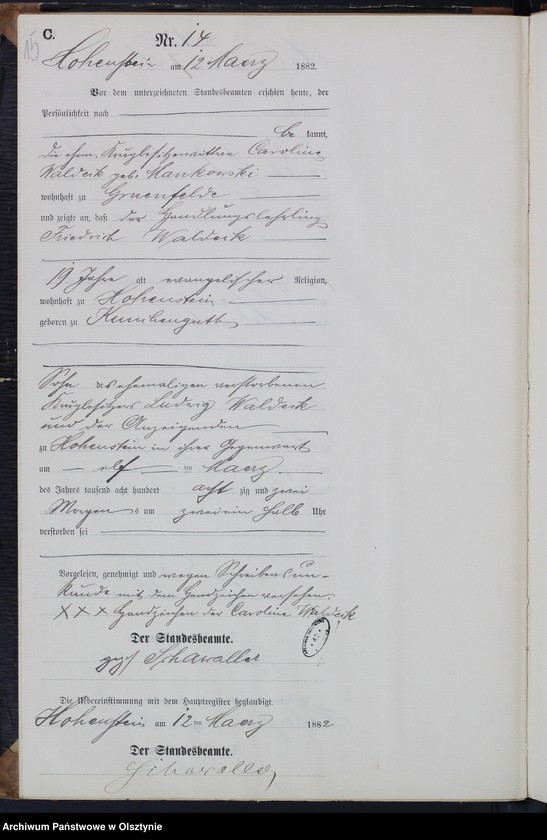 15
C.
Nr. 14
Hohenstein am 12 Maerz 1882.
Vor dem unterzeichneten Standesbeamten erschien heute, der
Persönlichkeit nach
be kannt,
die ehem. Krugbesitzerwittwe Caroline
Waldeik geb. Mankowski
wohnhaft zu Gruenfelde
und zeigte an, daß der Handlungslehrling
Friedrich Waldeik
19 Jahre alt evangelischer Religion,
wohnhaft zu Hohenstein
geboren zu
Sohn des ehemaligen verstorbenen
Krugbesitzers Ludwig Waldeik
und der Anzeigenden
zu Hohenstein in ihrer Gegenwart
am elf ten Maerz
des Jahres tausend acht hundert acht zig und zwei
Morgens um zweiein halb Uhr
verstorben sei
Vorgelesen, genehmigt und wegen Schreibensun-
kunde mit dem Handzeichen versehen.
XXX Handzeichen der Caroline Waldeik
Der Standesbeamte.
gez. Schawaller
Die Uebereinstimmung mit dem Hauptregister beglaubigt.
Hohenstein am 12 ten Maerz 1882
Der Standesbeamte.
Schawaller
Archiwum Państwowe w Olsztynie